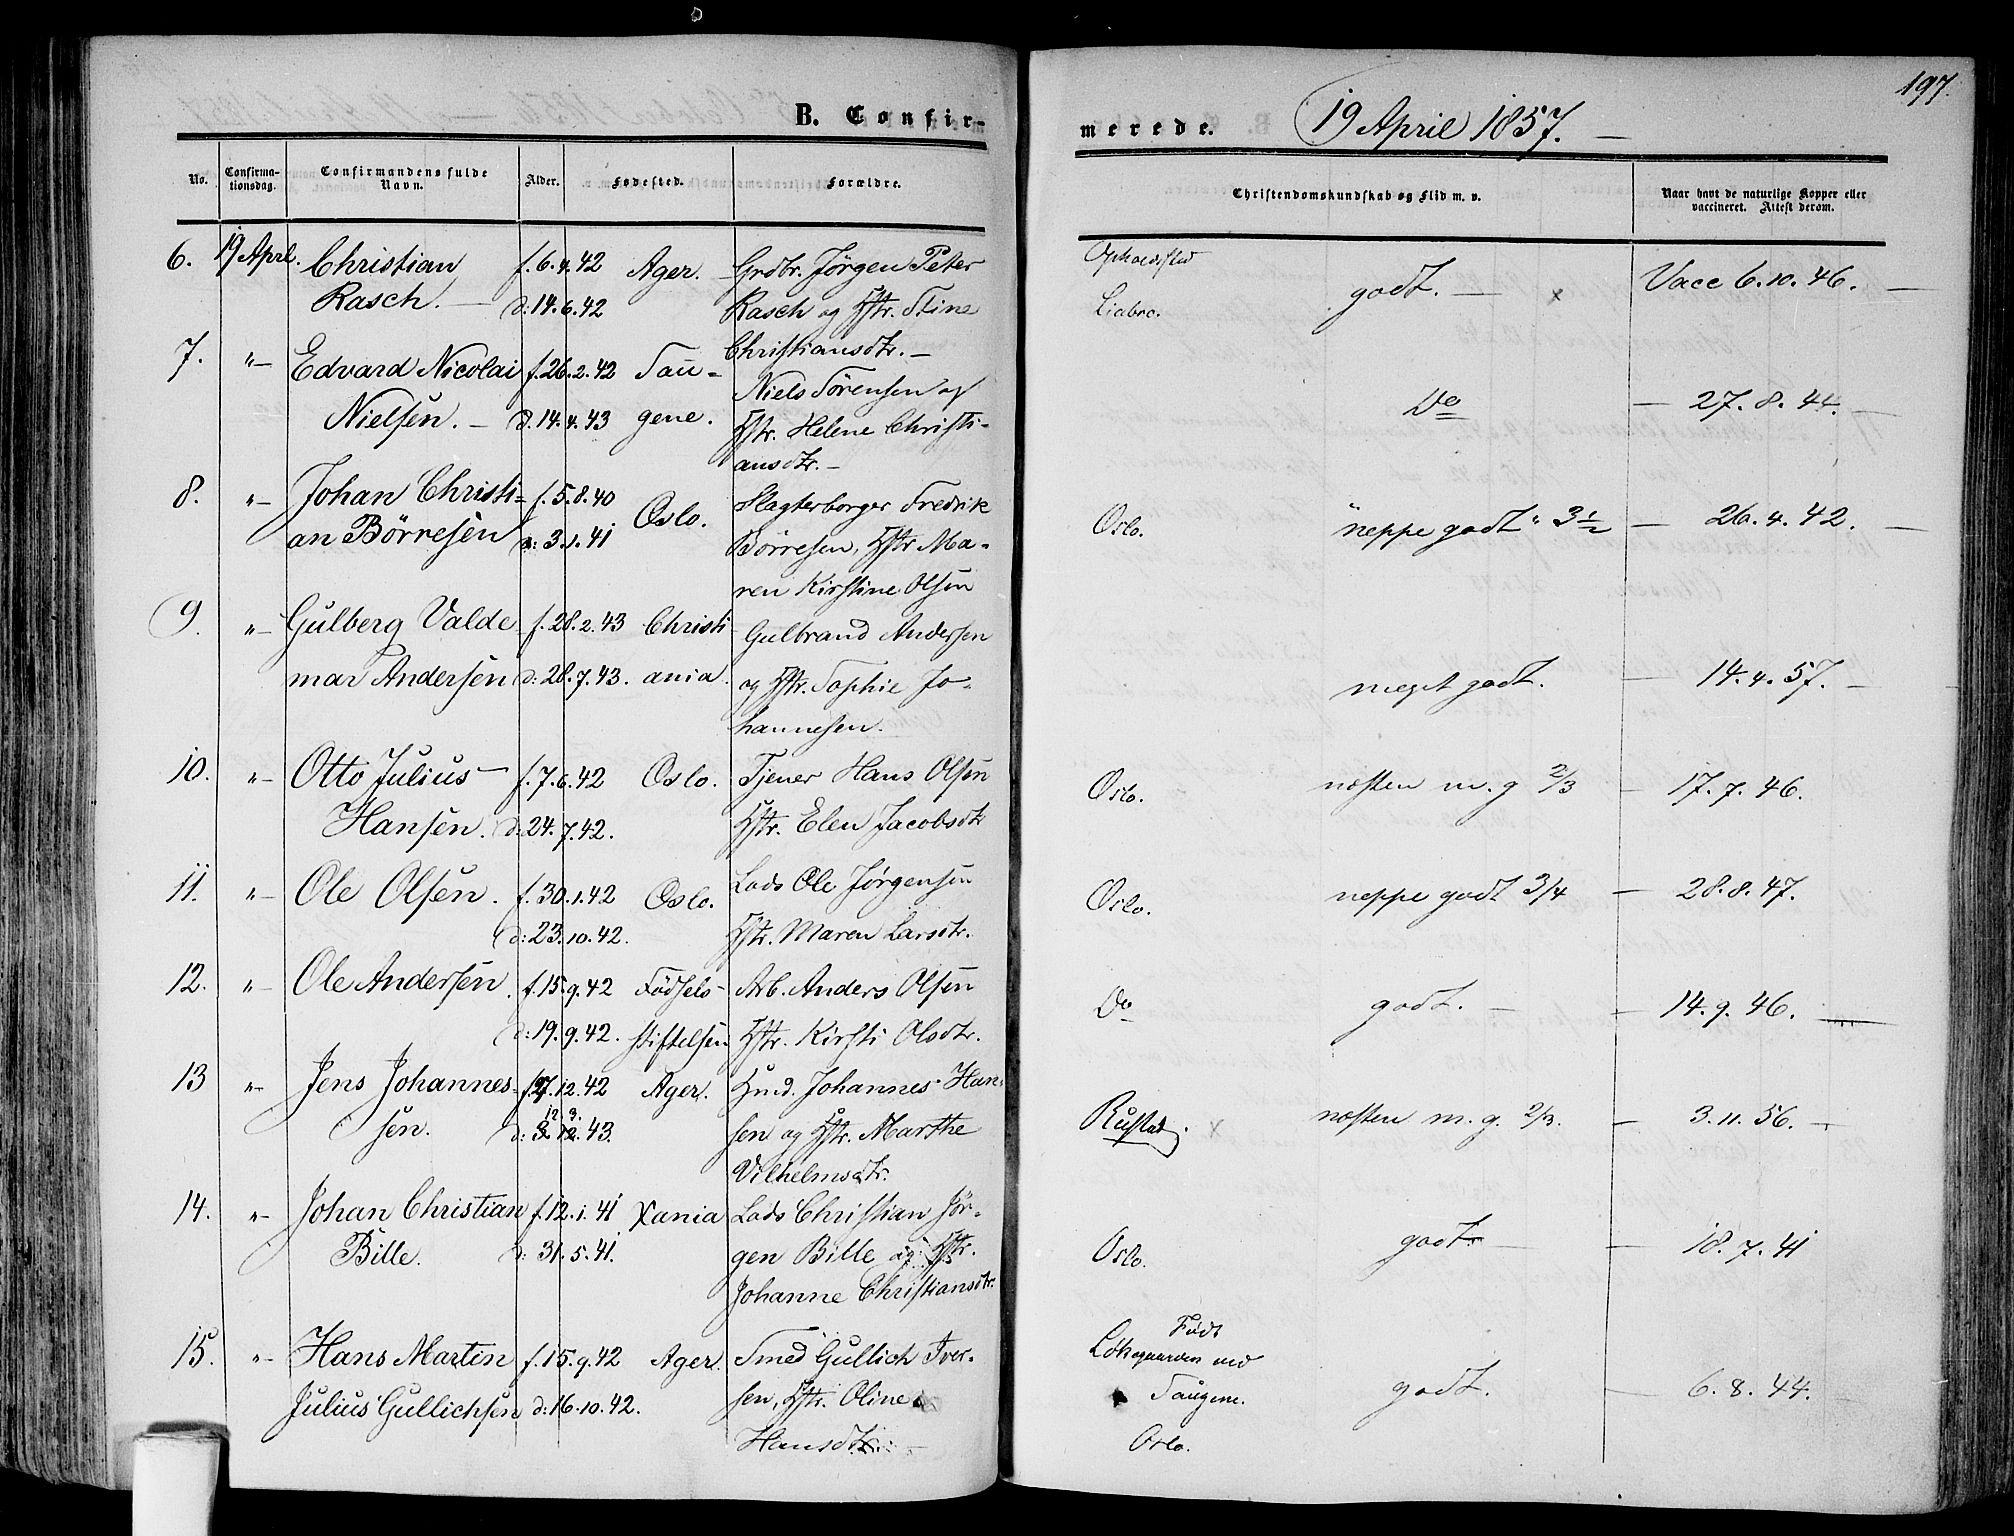 197.
B. Confir-
merede. 19 April 1857. —
No.
Confirma-
tionsdag.
Confirmandens fulde
Navn.
Alder.
Fødested.
Forældre.
Christendomskundskab og Flid m. v.
Naar havt de naturlige Kopper eller
vaccineret. Attest derom.
6. 19 Aprl. Christian f. 6.4.42 Ager. Grdbr. Jørgen Peter
Rasch. — d: 14.6.42 Rasch og Hstr. Stine
Christiansdtr. —
Opholdssted
Liabro.
godt. — x Vacc 6.10.46. —
7. "— Edvard Nicolai f. 26.2.42 Sau-
Nielsen. — d. 14.4.43 gene.
Niels Sørensen og
Hstr. Helene Christi-
ansdtr. —
Do — 27.8.44. —
8. "— Johan Christi- f. 5.8.40 Oslo. Slagterborger Fredrik
an Børresen d: 3.1.41 Børresen, Hstr Ma-
ren Kirstine Olsen
Oslo. "neppe godt" 3½ — 26.4.42. —
9. "— Gulberg Valde f. 28.2.43 Christi Gulbrand Andersen
mar Andersen d: 28.7.43. ania. og Hstr. Sophie Jo-
hannesen.
meget godt. — 14.4.57. —
10. "— Otto Julius f. 7.6.42 Oslo. Tjener Hans Olsen
Hansen. d: 24.7.42. Hstr. Elen Jacobsdtr
Oslo. næsten m. g 2/3 — 17.7.46.
11. "— Ole Olsen. f. 30.1.42 Oslo. Lods Ole Jørgensen
d: 23.10.42. Hstr. Maren Larsdtr.
Oslo. neppe godt 3/4 — 28.8.47.
12. "— Ole Andersen. f. 15.9.42 Fødsels- Arb. Anders Olsen
d: 19.9.42. stiftelsen Hstr. Kirsti Olsdtr.
Do godt. — — 14.9.46. —
13 "— Jens Johannes- f. 27.12.42 Ager. Hmd. Johannes Han-
sen. d: 12.3.43. sen og Hstr. Marthe
Vilhelmsdtr.
Rustad. x næsten m. g. 2/3. — 3.11.56. —
14. "— Johan Christian f. 12.1.41 Xania Lods Christian Jør-
Bille. d: 31.5.41. gen Bille og Hstr.
Johanne Christiansdtr.
Oslo. godt. — — 18.7.41
15. "— Hans Martin f. 15.9.42 Ager. Smed Gullich Iver-
Julius Gullichsen d: 16.10.42. sen, Hstr. Oline
Hansdtr. —
Født
Løkegaarden ved
Saugene.
Oslo.
godt. — 6.8.44.